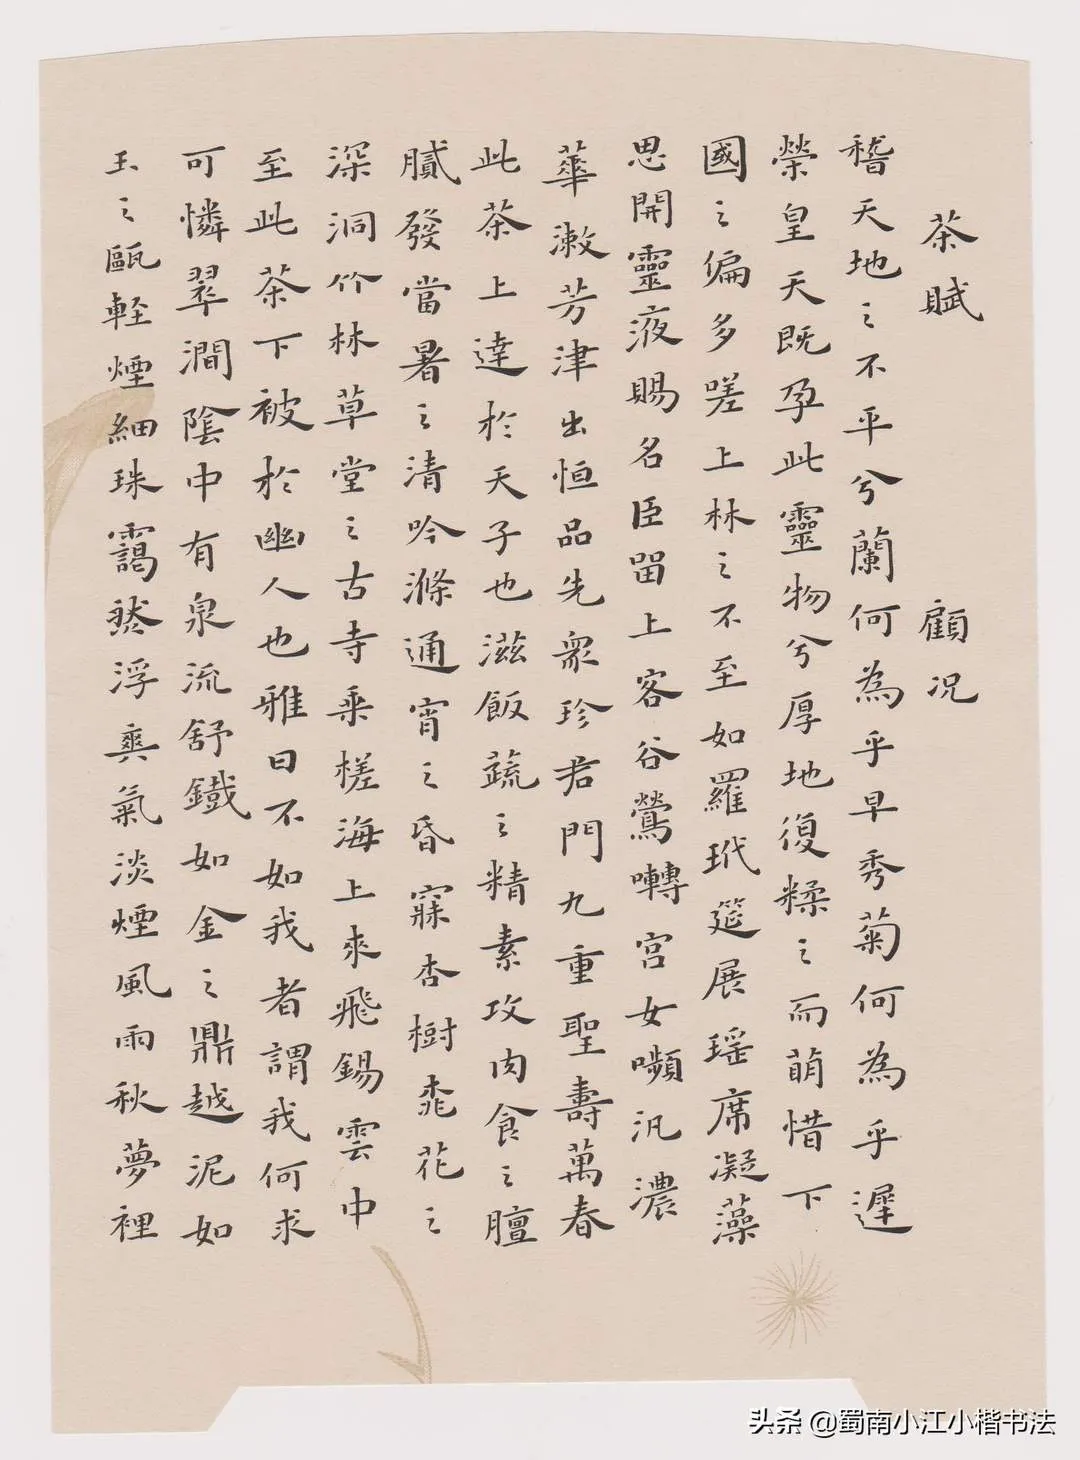 茶賦 顧況
稽天地之不平兮蘭何為乎早秀菊何為乎遲
榮皇天既孕此靈物兮厚地復糅之而萌惜下
國之偏多嗟上林之不至如羅玳筵展瑤席凝藻
思開靈液賜名臣留上客谷鶯囀宮女嚬汎濃
華漱芳津出恒品先眾珍君門九重聖壽萬春
此茶上達於天子也滋飯蔬之精素攻肉食之膻
膩發當暑之清吟滌通宵之昏寐杏樹桃花之
深洞竹林草堂之古寺乘槎海上來飛錫雲中
至此茶下被於幽人也雅曰不如我者謂我何求
可憐翠澗陰中有泉流舒鐵如金之鼎越泥如
玉之甌輕煙細珠靄然浮爽氣淡煙風雨秋夢裡
头条 @蜀南小江小楷书法